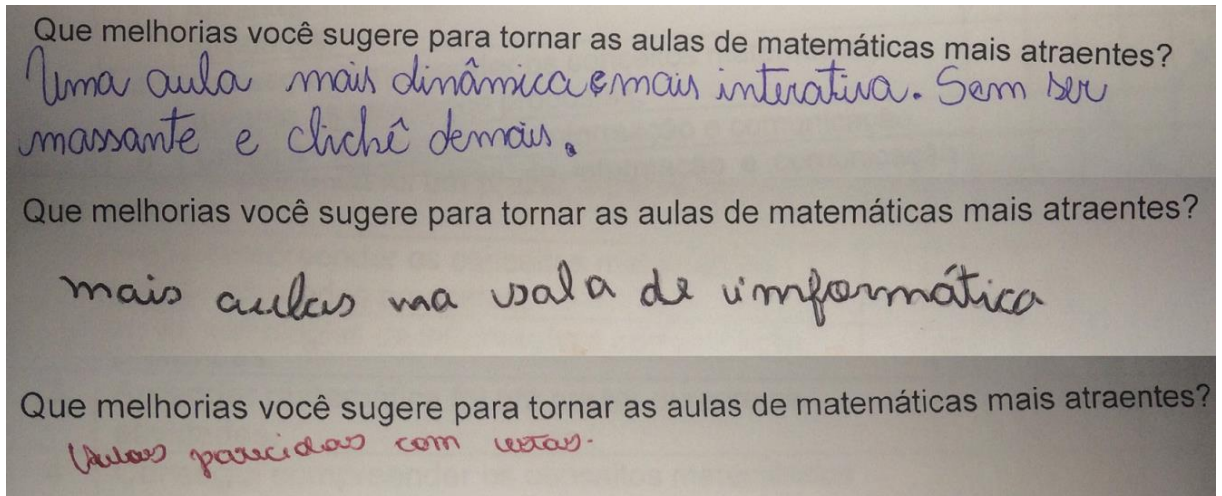 Que melhorias você sugere para tornar as aulas de matemáticas mais atraentes?
Uma aula mais dinâmica e mais interativa. Sem ser
massante e clichê demais.
Que melhorias você sugere para tornar as aulas de matemáticas mais atraentes?
mais aulas na sala de imformática
Que melhorias você sugere para tornar as aulas de matemáticas mais atraentes?
Aulas parecidas com estas.